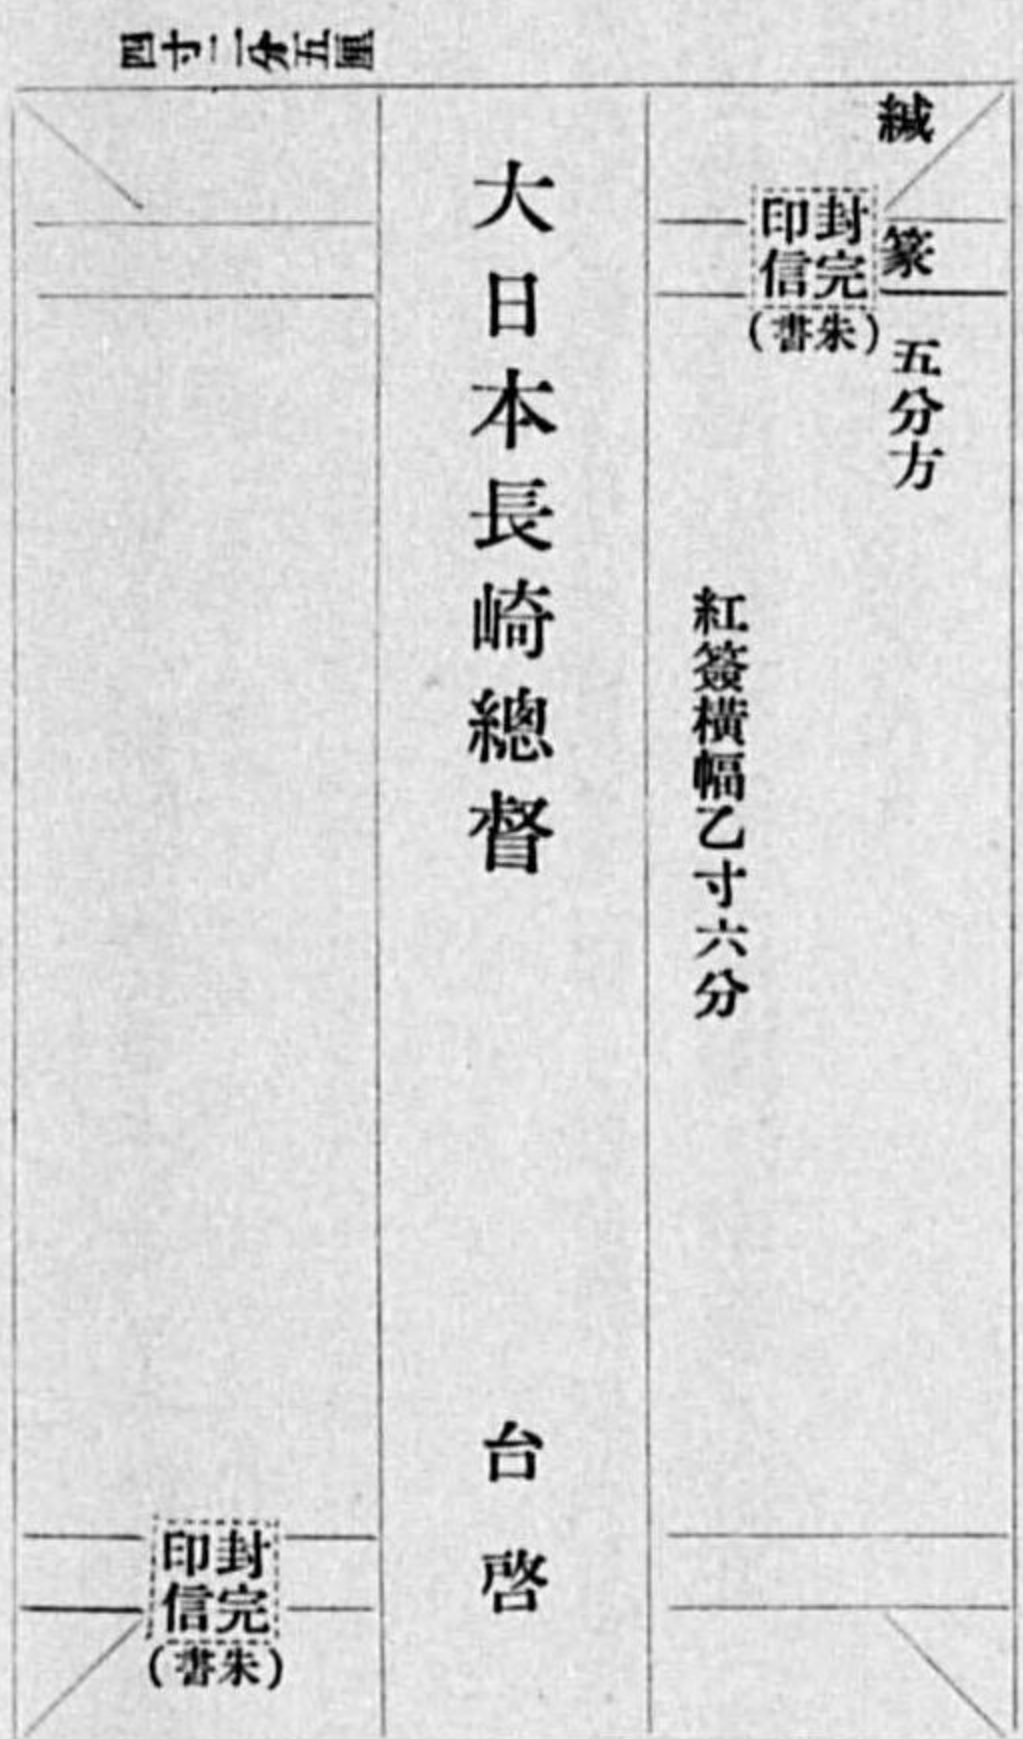 四寸二分五厘
緘
篆
五分方
封完
印信
(朱書)
紅簽横幅乙寸六分
大日本長崎總督
台啓
封完
印信
(朱書)